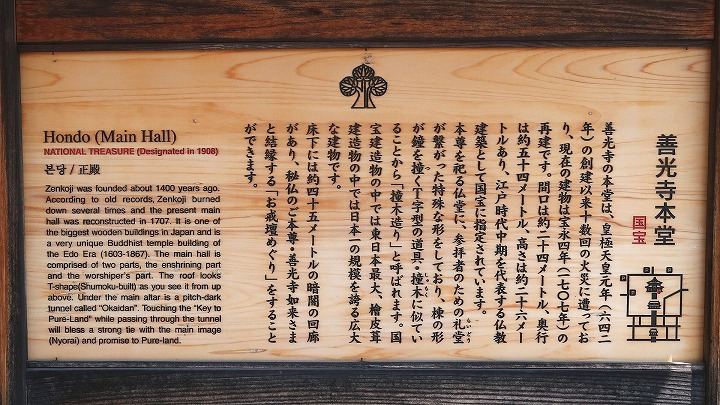 善光寺本堂
国宝
善光寺の本堂は、皇極天皇元年(六四二
年)の創建以来十数回の火災に遭ってお
り、現在の建物は宝永四年(一七〇七年)の
再建です。間口は約二十四メートル、奥行
は約五十四メートル、高さは約二十六メー
トルあり、江戸時代中期を代表する仏教
建築として国宝に指定されています。
本尊を祀る仏堂に、参拝者のための礼堂
が繋がった特殊な形をしており、棟の形
が鐘を撞くT字型の道具・撞木に似てい
ることから「撞木造り」と呼ばれます。国
宝建造物の中では東日本最大、檜皮葺
建造物の中では日本一の規模を誇る広大
な建物です。
床下には約四十五メートルの暗闇の回廊
があり、秘仏のご本尊・善光寺如来さま
と結縁する「お戒壇めぐり」をすること
ができます。
Hondo (Main Hall)
NATIONAL TREASURE (Designated in 1908)
본당 / 正殿
Zenkoji was founded about 1400 years ago.
According to old records, Zenkoji burned
down several times and the present main
hall was reconstructed in 1707. It is one of
the biggest wooden buildings in Japan and is
a very unique Buddhist temple building of
the Edo Era (1603-1867). The main hall is
comprised of two parts, the enshrining part
and the worshiper's part. The roof looks
T-shape(Shumoku-built) as you see it from up
above. Under the main altar is a pitch-dark
tunnel called "Okaidan". Touching the "Key to
Pure-Land" while passing through the tunnel
will bless a strong tie with the main image
(Nyorai) and promise to Pure-land.